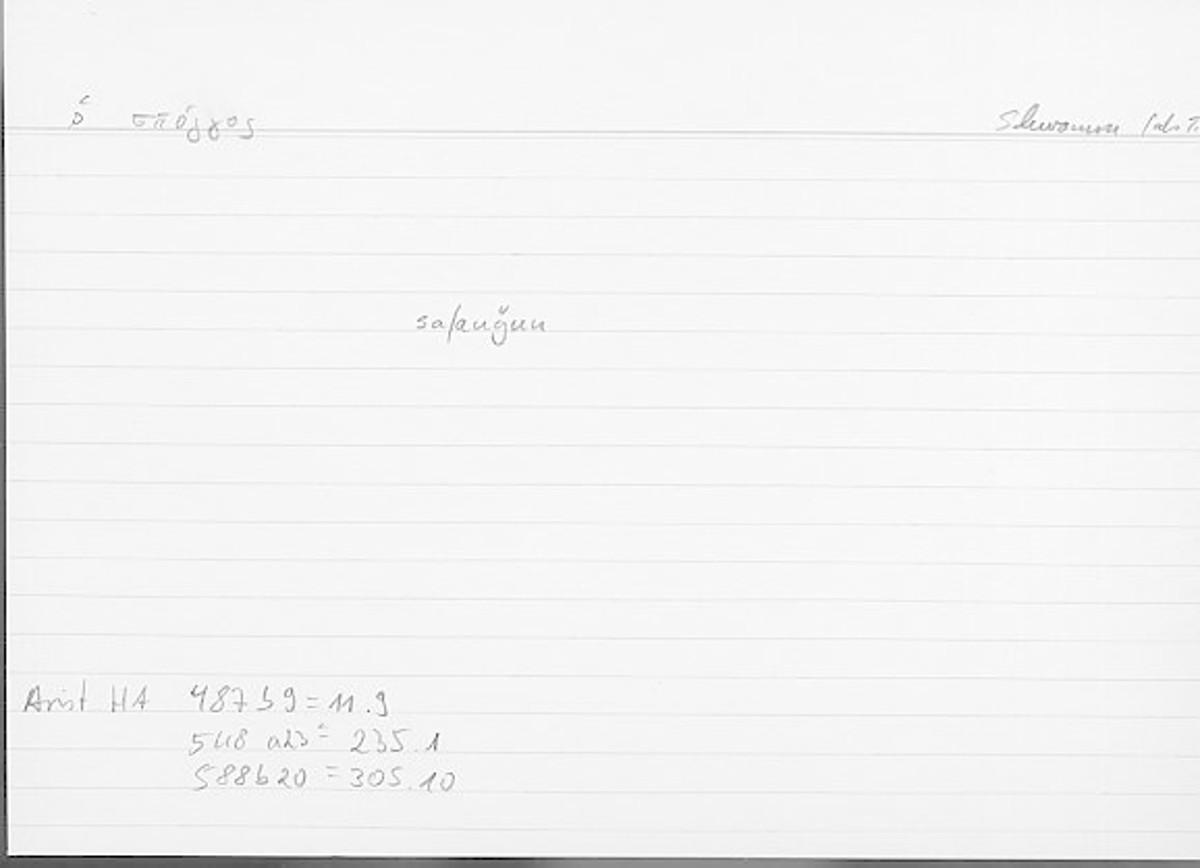 ὁ σπόγγος Schwamm (als T
safanǧun
Arist HA 487 b 9 = 11.9
548 a23 = 235.1
588b20 = 305.10